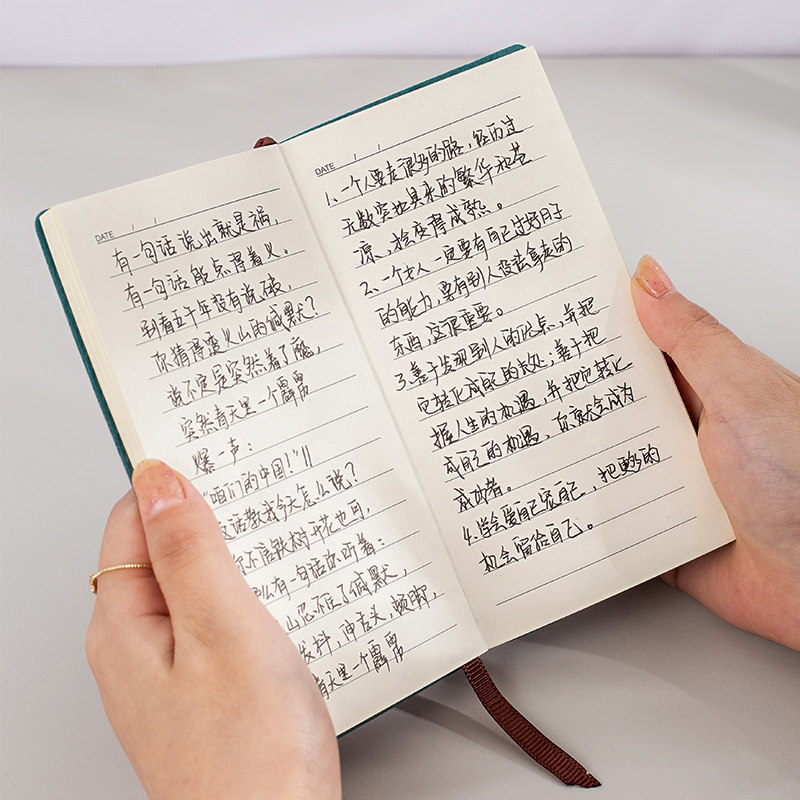 DATE / /
有一句话说出就是祸,
有一句话能点得着火。
别看五千年没有说破,
你猜得透火山的缄默?
说不定是突然着了魔,
突然青天里一个霹雳
爆一声:
"咱们的中国!"
这话教我今天怎么说?
你不信铁树开花也可,
么有一句话你听着:
山忍不住了缄默,
发抖,伸舌头,顿脚,
青天里一个霹雳
DATE / /
1、一个人要走很多的路,经历过
无数突如其来的繁华和苍
凉、才会变得成熟。
2、一个女人一定要有自己过好日子
的能力,要有别人没法拿走的
东西,这很重要。
3、善于发现别人的优点,并把
它转化成自己的长处;善于把
握人生的机遇,并把它转化
成自己的机遇,你就会成为
成功者。
4.学会爱自己宠自己,把更多的
机会留给自己。